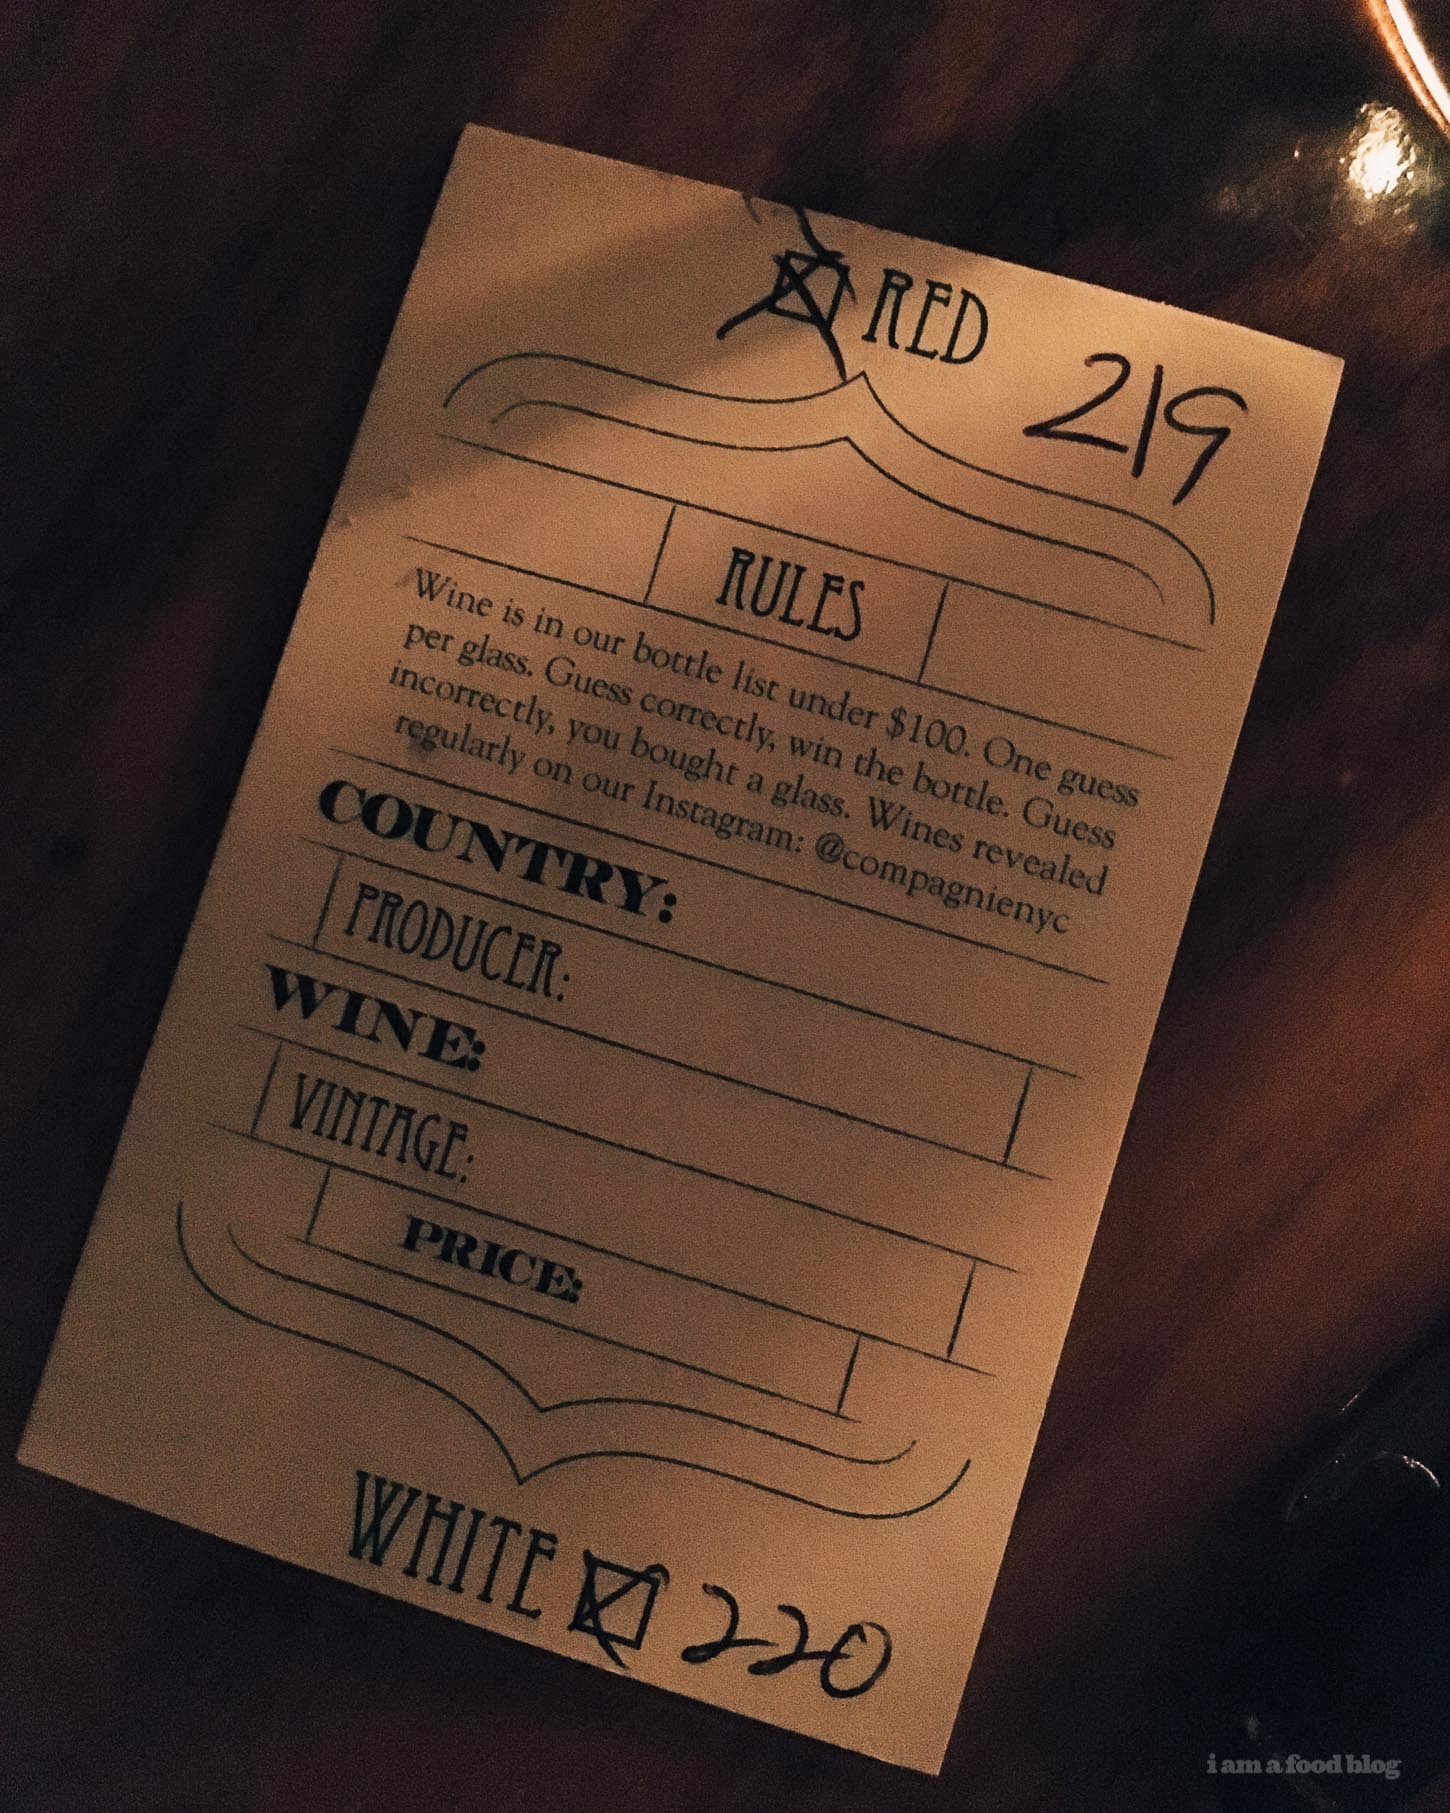 RED 219
RULES
Wine is in our bottle list under $100. One guess
per glass. Guess correctly, win the bottle. Guess
incorrectly, you bought a glass. Wines revealed
regularly on our Instagram: @compagnienyc
COUNTRY:
PRODUCER:
WINE:
VINTAGE:
PRICE:
WHITE 220
i am a food blog